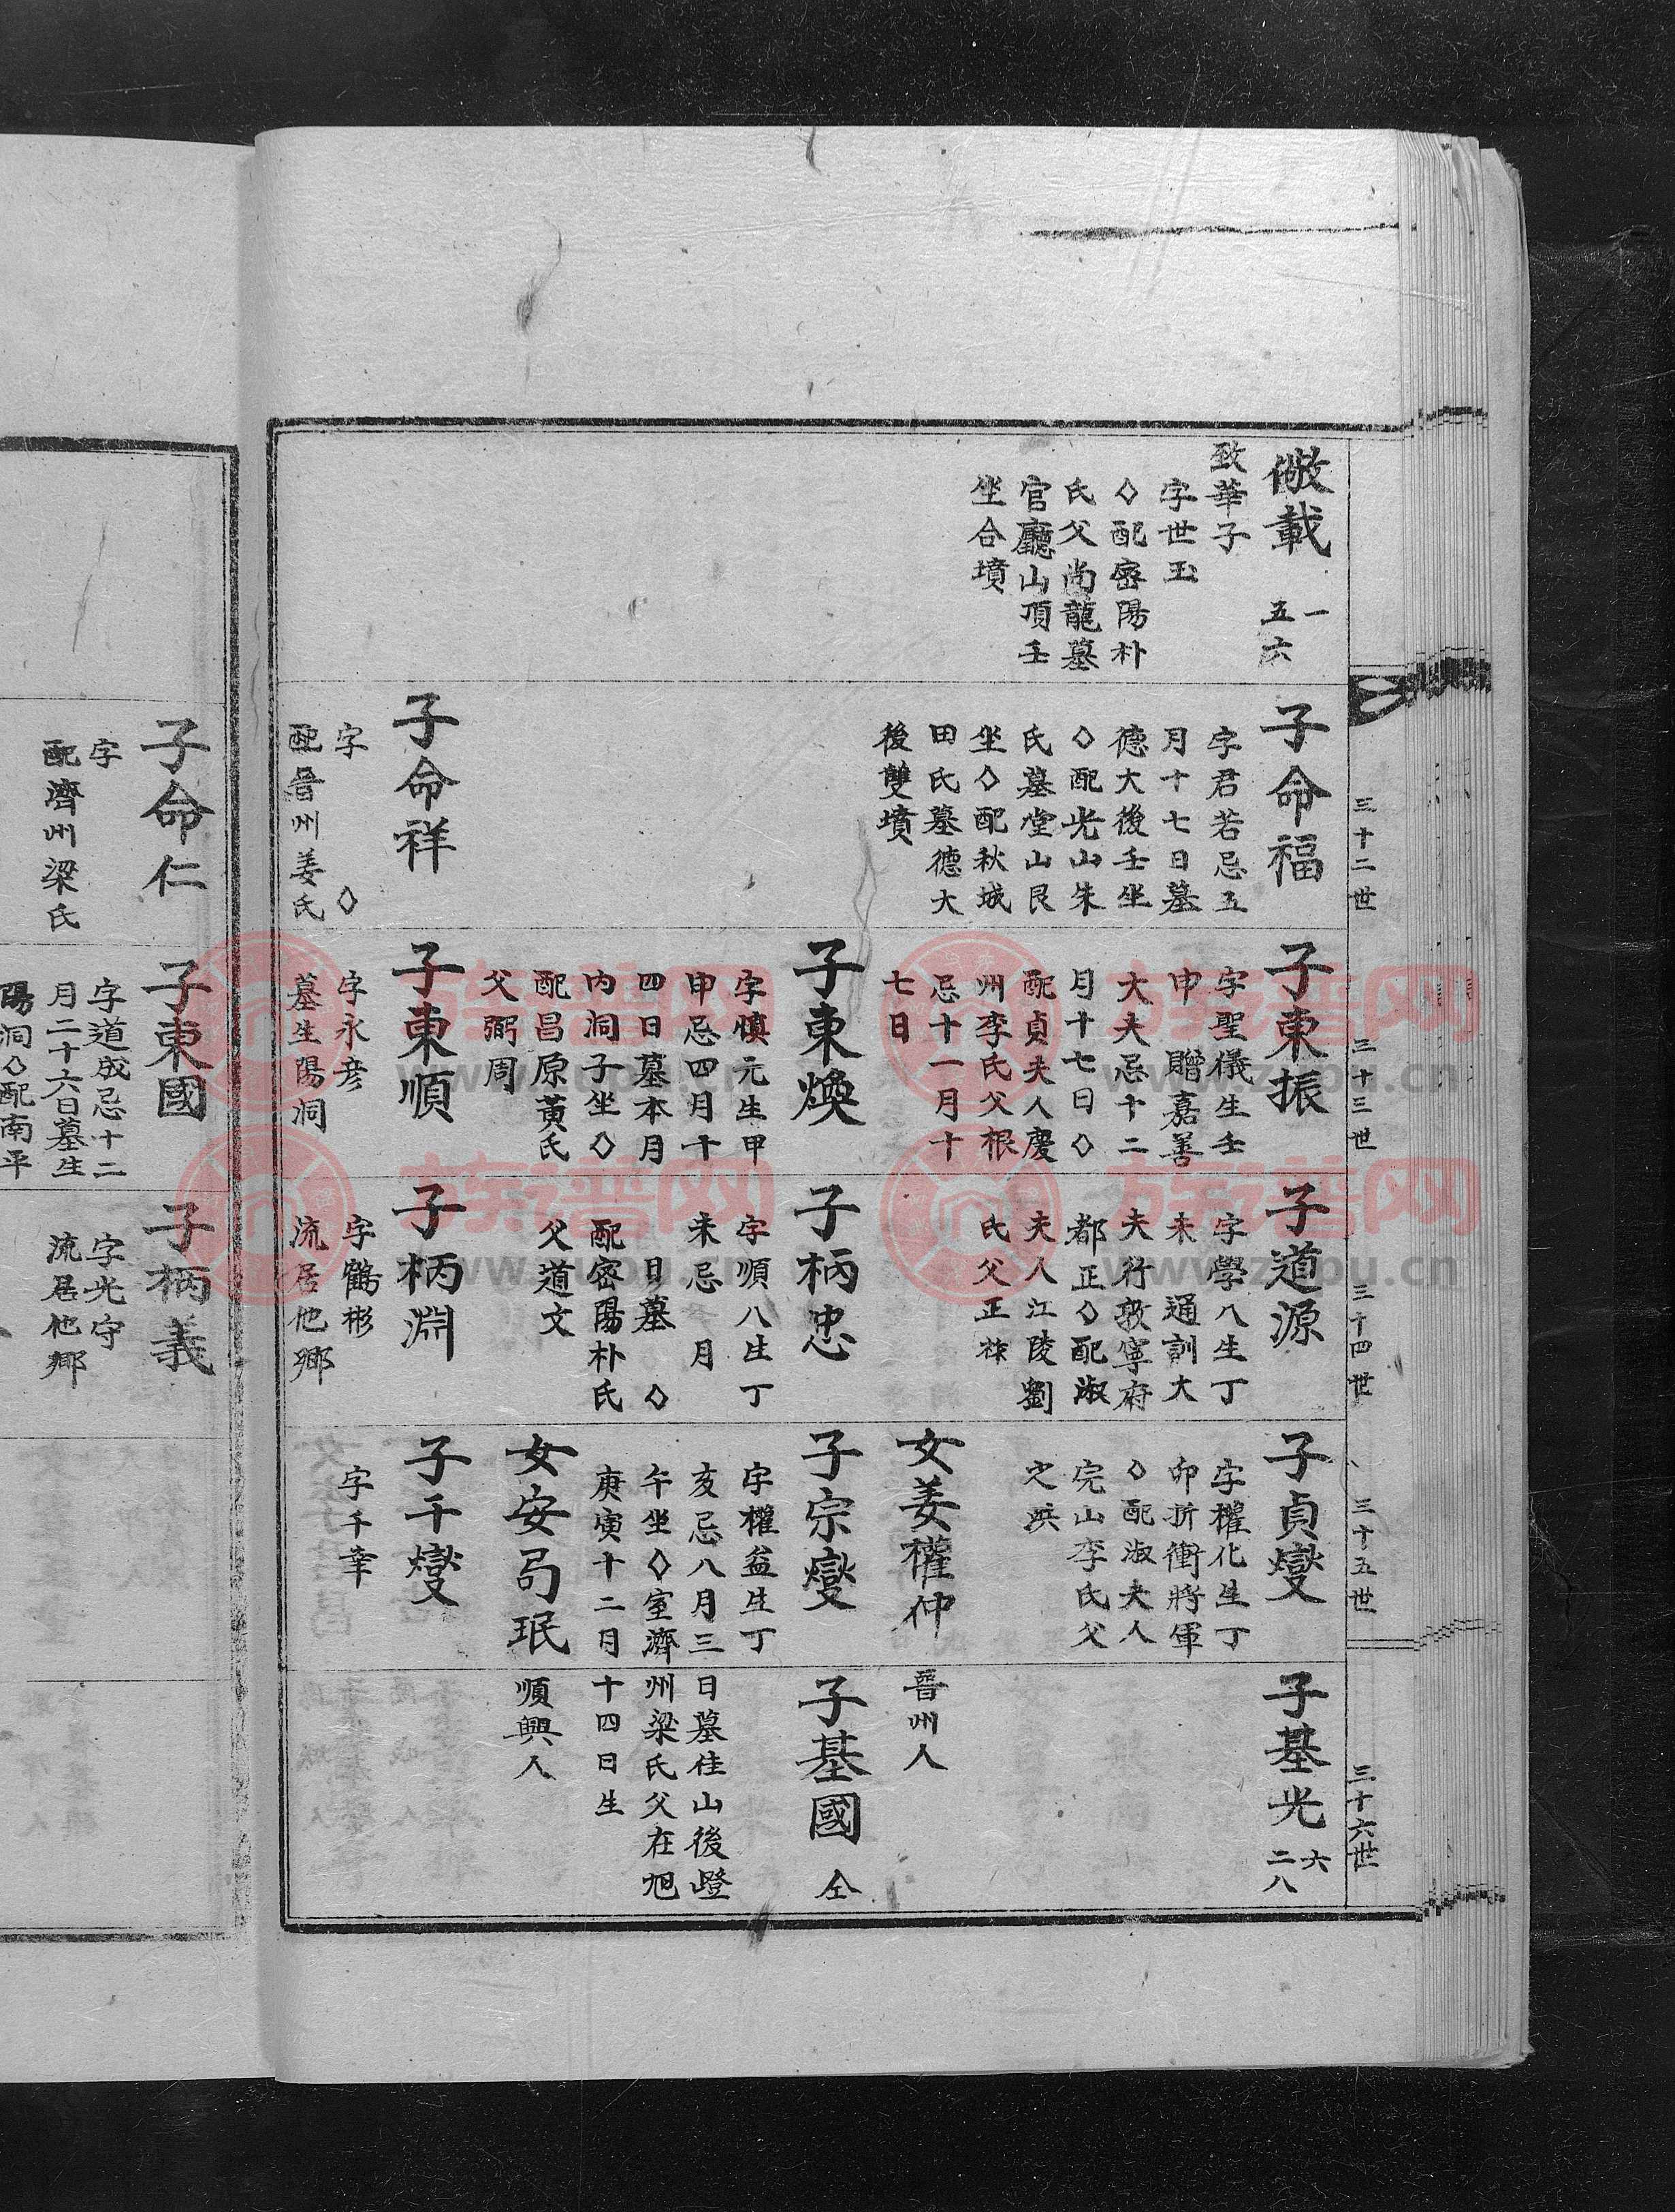 三十二世
三十三世
三十四世
三十五世
三十六世
儆載
一
五六
致華子
字世玉
◇配密陽朴
氏父尚龍墓
官廳山頂壬
坐合墳
子命福
字君若忌五
月十七日墓
德大後壬坐
◇配光山朱
氏墓堂山艮
坐◇配秋城
田氏墓德大
後雙墳
子命祥
字 ◇
配晉州姜氏
子東振
字聖儀生壬
申 贈嘉善
大夫忌十二
月十七日◇
配貞夫人慶
州李氏父根
忌十一月十
七日
子東煥
字慎元生甲
申忌四月十
四日墓本月
內洞子坐◇
配昌原黃氏
父弼周
子東順
字永彦
墓生陽洞
子道源
字學八生丁
未 通訓大
夫行敦寧府
都正◇配淑
夫人江陵劉
氏父正
子柄忠
字順八生丁
未忌 月
日墓 ◇
配密陽朴氏
父道文
子柄淵
字鶴彬
流居他鄉
子貞燮
字權化生丁
卯折衝將軍
◇配淑夫人
完山李氏父
之洪
女姜權仲
晉州人
子宗燮
字權益生丁
亥忌八月三
日墓佳山後嶝
午坐◇室濟
州梁氏父在旭
庚寅十二月
十四日生
女安弼珉
順興人
子千燮
字千幸
子基光
六
二八
子基國 仝
子命仁
字
配濟州梁氏
子東國
字道成忌十二
月二十六日墓生
陽洞◇配南平
子柄義
字光守
流居他鄉
族谱网
www.zupu.cn
族谱网
www.zupu.cn
族谱网
www.zupu.cn
族谱网
www.zupu.cn